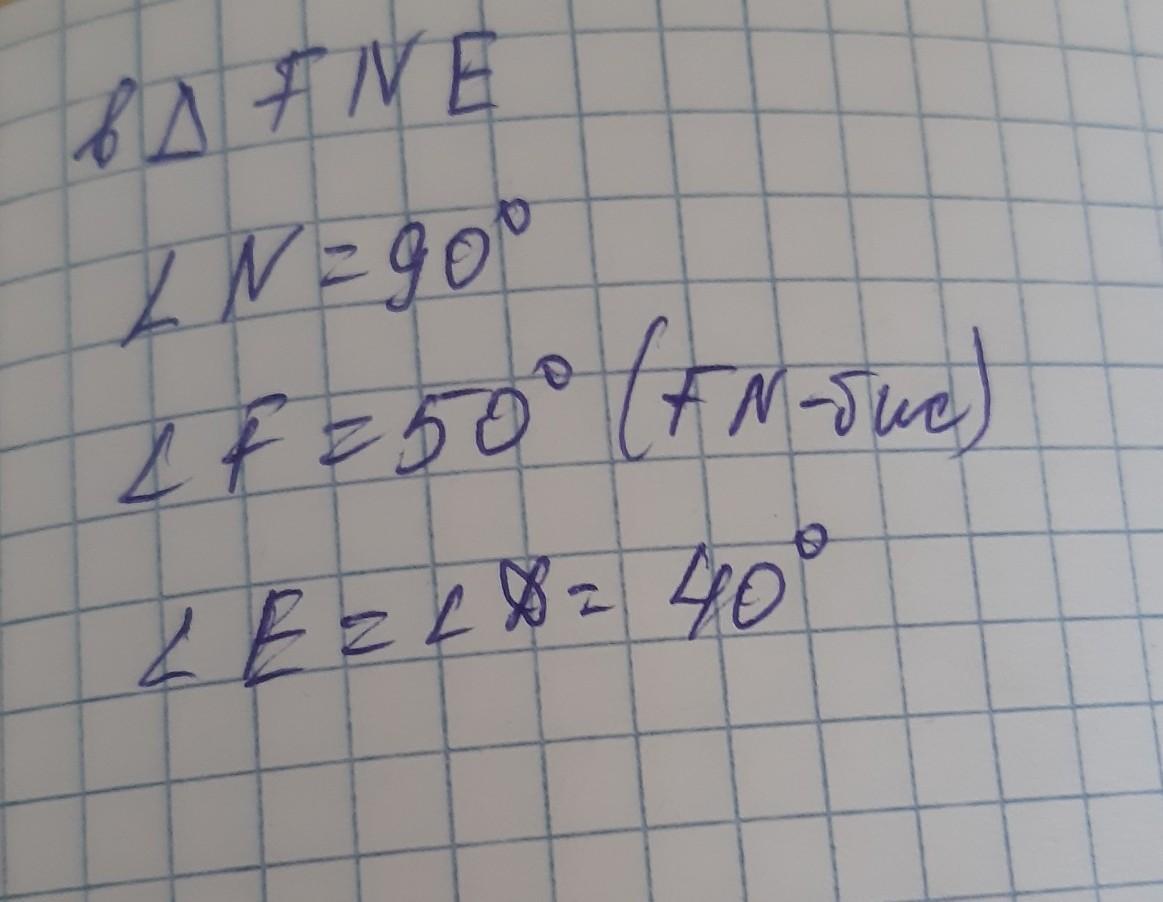 в Δ FNE
∠N=90°
∠F=50° (FN-бис)
∠E=∠ = 40°